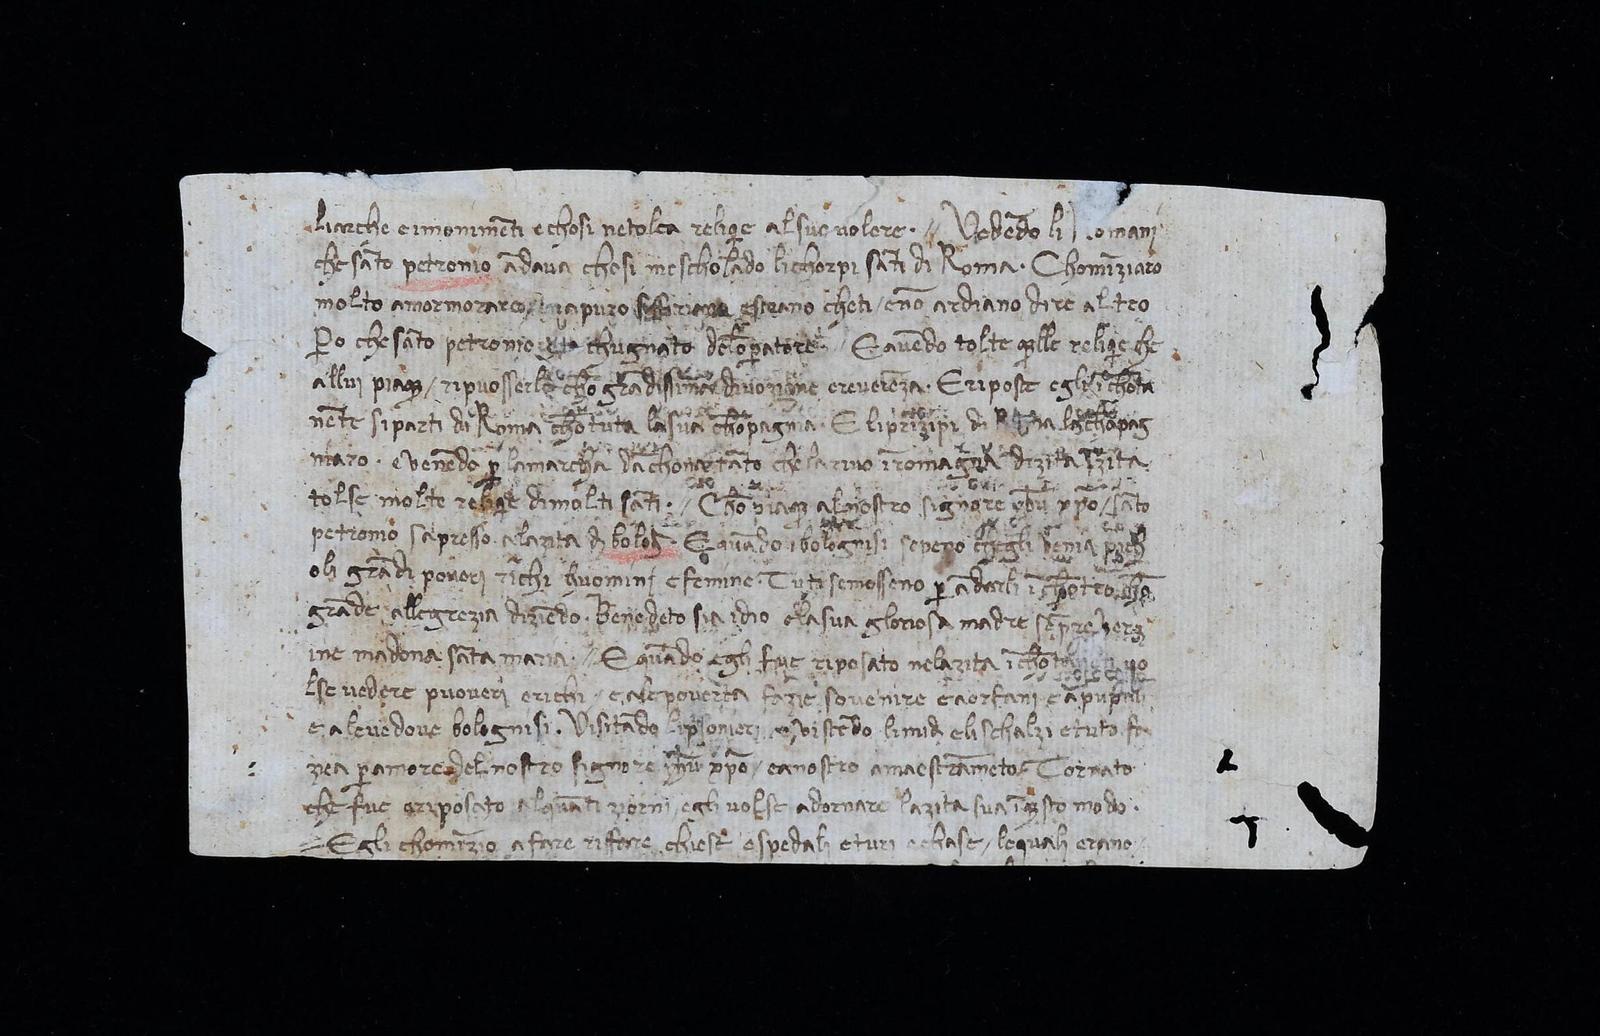 li arche e i monimẽti e chosi ne tolea reliq̃e al suo volere · // Vedẽdo li omani
che sãto petronio ãdava chosi mescholãdo li chorpi sãti di Roma · Chomĩziaro
molto a mormorare / ma puro strano cheti / e nõ ardiano dire altro
Po che sãto petronio chugnato delo ĩperatore · // E avẽdo tolte q̃lle reliq̃e che
a llui piaq̃ / ripuosserle chõ grãdissima divozione e reverẽza · E riposte egli ĩchõta
nẽte si parti di Roma chõ tuta la sua chõpagnia · E li prĩzipi di Roma la chõpag
niaro · e venẽdo p̱ la marcha dachona tãto che larivo ĩ romagna di zita ĩ zita
tolse molte reliq̃e di molti sãti · // Chõ piaq̃ al nostro signore yh̃u xp̃o / sãto
petronio sapresso a la zita di bolog̃ · E quãdo i bolognisi sepeno che egli venia pich
oli grãdi poveri richi huomini e femine Tuti se mosseno p̱ ãdarli ĩchõtro chõ
grãde allegrezia dizẽdo · Benedeto sia idio e la sua gloriosa madre sẽpre verg
ine madona sãta maria · // E quãdo egli fue riposato ne la zita ĩchõtanẽti vo
lse vedere puoveri e richi / e a le poverta fazie sovenire e a orfani e a pupilli
e a le vedove bolognisi · Visitãdo li p̱sonieri e vistẽdo li nudi e li schalzi e tuto fa
zea p̱ amore del nostro signore yh̃u xp̃o / e a nostro amaestramẽto · Tornato
che fue e riposato alquãti zorni egli volse adornare la zita sua ĩ q̃sto modo ·
// Egli chomĩzio a fare riffare chiese e spedali e turi e chase / le quali erano